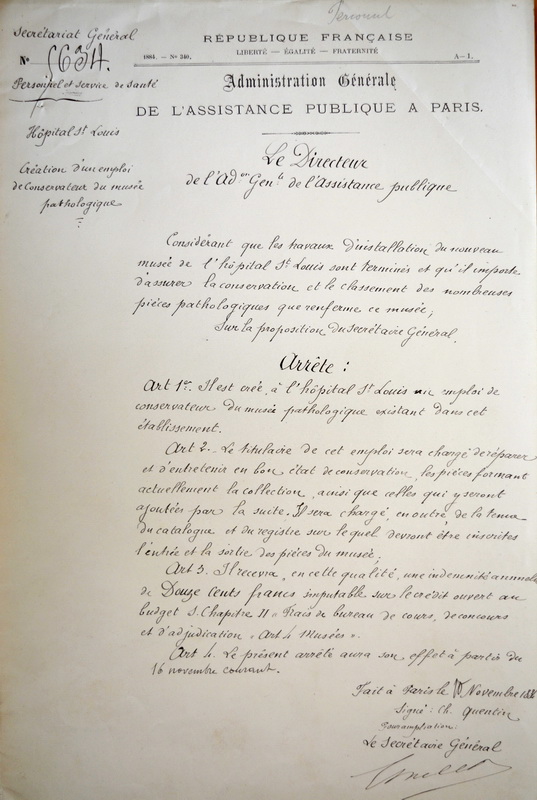 Personnel
Secrétariat Général
N° 5634.
Personnel et service de santé
Hôpital St Louis
Création d'un emploi
de Conservateur du musée
pathologique
RÉPUBLIQUE FRANÇAISE
LIBERTÉ — ÉGALITÉ — FRATERNITÉ
1884. — N° 340.
A—1.
Administration Générale
DE L'ASSISTANCE PUBLIQUE A PARIS.
Le Directeur
de l'Adon Genle de l'Assistance publique
Considérant que les travaux d'installation du nouveau
musée de l'hôpital St Louis sont terminés et qu'il importe
d'assurer la conservation et le classement des nombreuses
pièces pathologiques que renferme ce musée;
Sur la proposition du Secrétaire Général.
Arrête :
Art 1er. Il est créé, à l'hôpital St Louis un emploi de
conservateur du musée pathologique existant dans cet
établissement.
Art 2. Le titulaire de cet emploi sera chargé de réparer
et d'entretenir en bon état de conservation, les pièces formant
actuellement la collection, ainsi que celles qui y seront
ajoutées par la suite. Il sera chargé, en outre, de la tenue
du catalogue et du registre sur lequel devront être inscrites
l'entrée et la sortie des pièces du musée.
Art 3. Il recevra, en cette qualité, une indemnité annuelle
de Douze Cents francs imputable sur le crédit ouvert au
budget S. Chapitre 11 « Frais de bureau de cours, de concours
et d'adjudication » Art 4 Musées ».
Art 4. Le présent arrêté aura son effet à partir du
16 novembre courant.
Fait à Paris le Novembre
Signé : Ch. Quentin
Pour ampliation :
Le Secrétaire Général